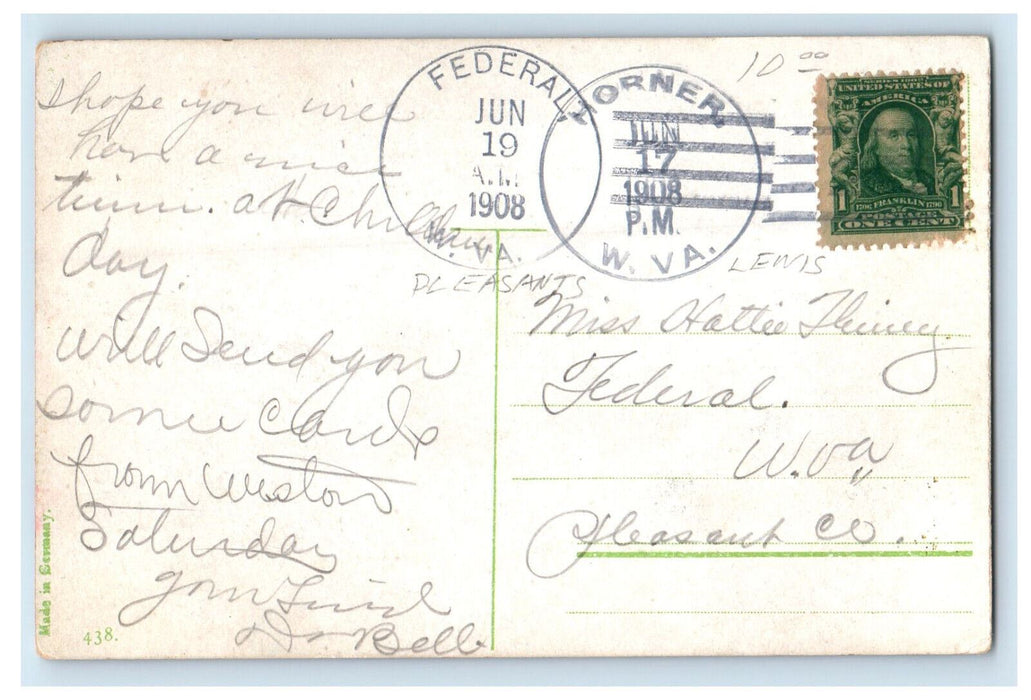 I hope you will
have a nice
time. at Children
day.
will Send you
some cards
from Weston
Saturday
your Friend
D. Bell
Made in Germany.
438.
FEDERAL
JUN
19
A.M.
1908
W. VA.
ORNER,
JUN
17
1908
P.M.
W. VA.
10 00
PLEASANTS
LEWIS
SERIES 1902
UNITED STATES OF
AMERICA
1 1
1706 FRANKLIN 1790
POSTAGE
ONE CENT
Miss Hattie
Federal.
W. va
Pleasant Co.